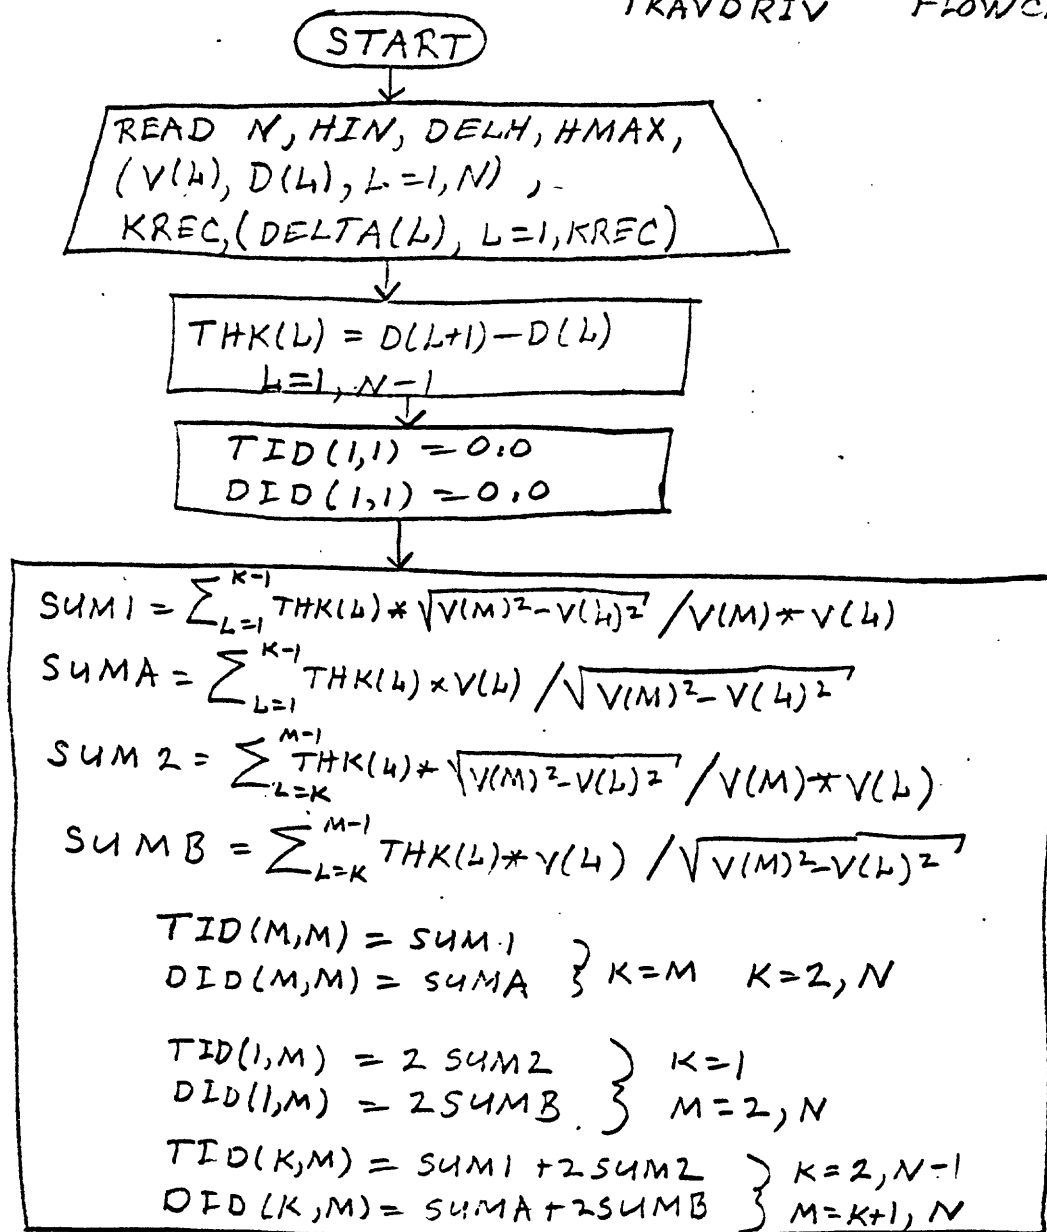 TRAVDRIV FLOWC
START
READ N, HIN, DELH, HMAX,
(V(L), D(L), L=1,N),
KREC,(DELTA(L), L=1,KREC)
THK(L) = D(L+1)-D(L)
L=1, N-1
TID(1,1) = 0.0
DID(1,1) = 0.0
SUM1 = ∑_{L=1}^{K-1} THK(L)*√V(M)²-V(L)² /V(M)*V(L)
SUMA = ∑_{L=1}^{K-1} THK(L)*V(L) /√V(M)²-V(L)²
SUM2 = ∑_{L=K}^{M-1} THK(L)*√V(M)²-V(L)² /V(M)*V(L)
SUMB = ∑_{L=K}^{M-1} THK(L)*V(L) /√V(M)²-V(L)²
TID(M,M) = SUM1
DID(M,M) = SUMA } K=M K=2,N
TID(1,M) = 2 SUM2 } K=1
DID(1,M) = 2SUMB } M=2,N
TID(K,M) = SUM1 +2SUM2 } K=2,N-1
DID(K,M) = SUMA+2SUMB } M=K+1,N